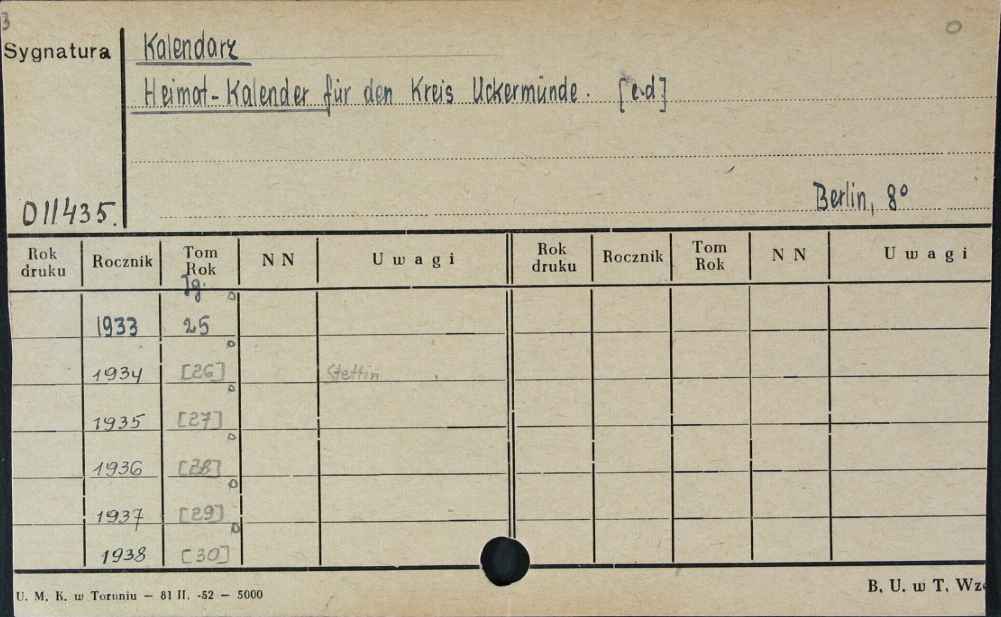 3
Sygnatura Kalendarz
Heimat-Kalender für den Kreis Uckermünde. [e.d]
D11435. Berlin, 8°
Rok druku Rocznik Tom Rok NN Uwagi Rok druku Rocznik Tom Rok NN Uwagi
Jg.
1933 25
1934 [26] Stettin
1935 [27]
1936 [28]
1937 [29]
1938 [30]
U. M. K. w Toruniu – 81 II. -52 – 5000 B. U. w T. Wz